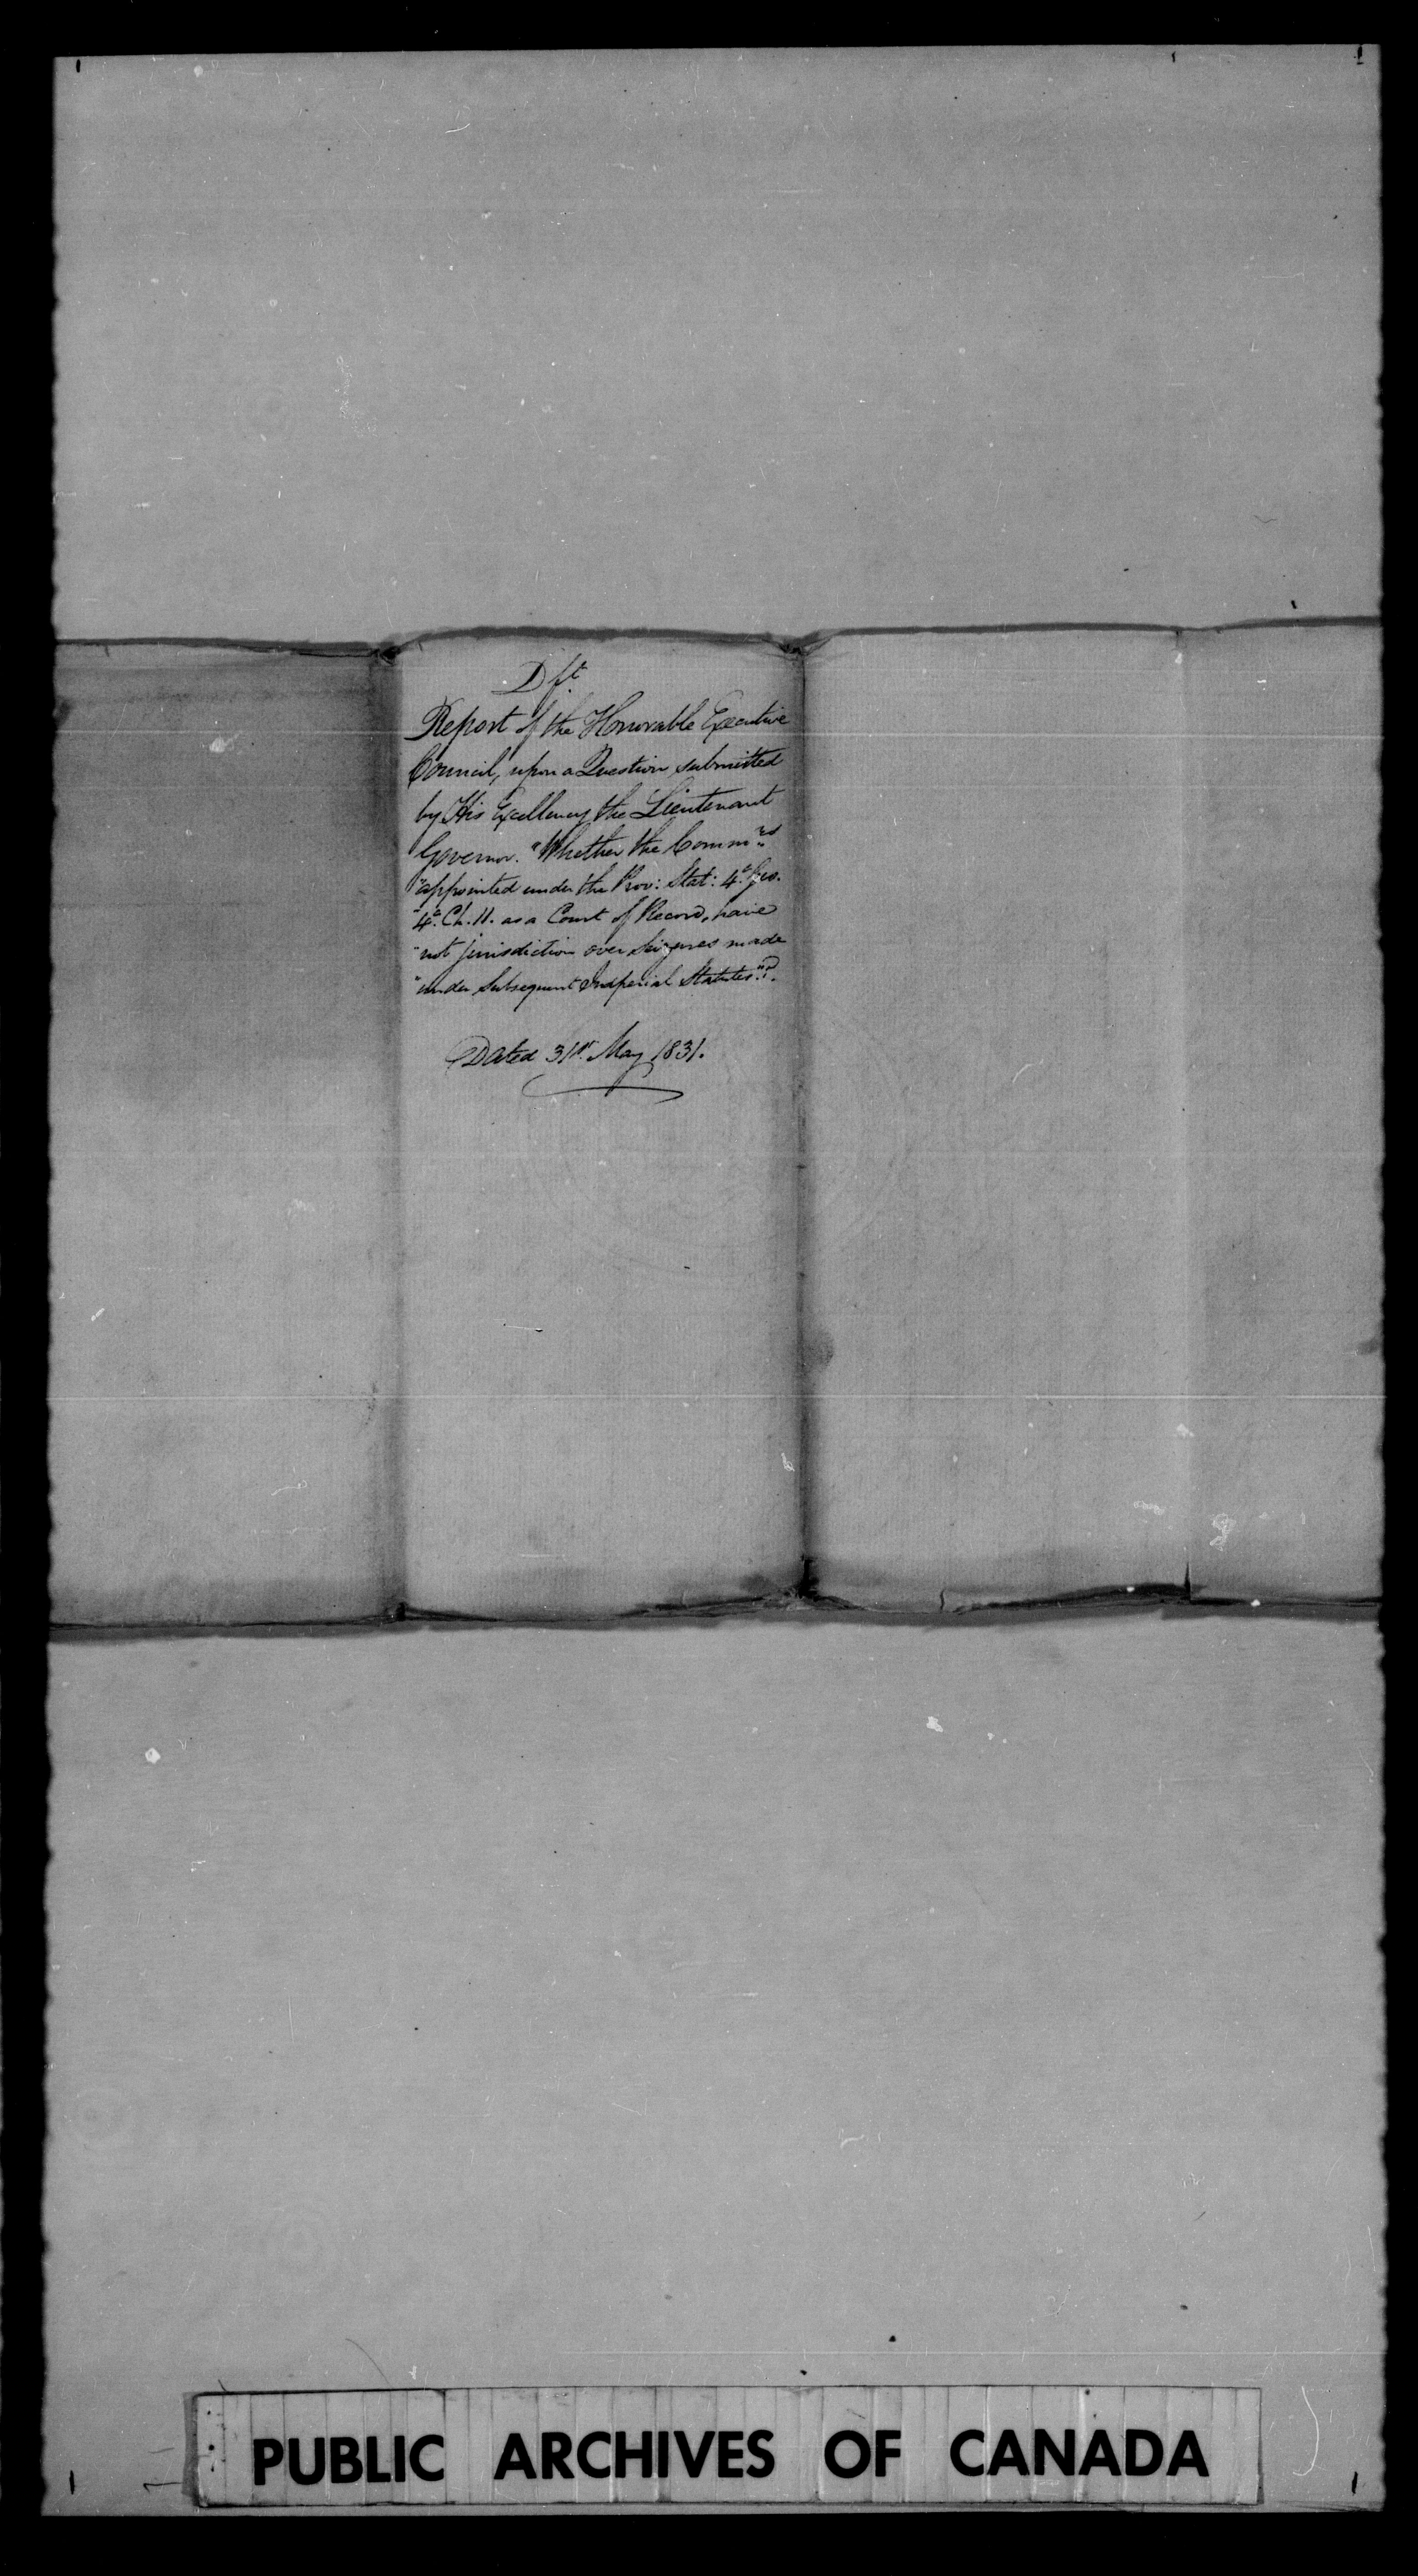 Dft.
Report of the Honorable Executive
Council, upon a Question submitted
by His Excellency the Lieutenant
Governor. "Whether the Commrs
"appointed under the Prov: Stat: 4o. Geo.
"4o. Ch. 11. as a Court of Record, have
"not jurisdiction over Seizures made
"under Subsequent Imperial Statutes"?.
Dated 31st. May 1831.
PUBLIC ARCHIVES OF CANADA